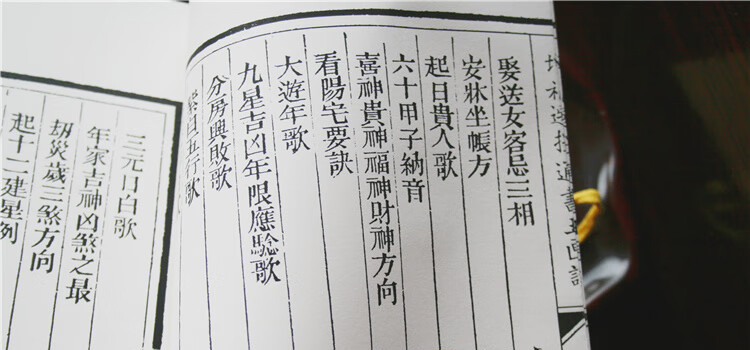 娶送女客忌三相
安牀坐帳方
起日貴人歌
六十甲子納音
喜神貴神福神財神方向
看陽宅要訣
大遊年歌
九星吉凶年限應騐歌
分房興敗歌
五行歌
三元日白歌
年家吉神凶煞之最
劫災歲三煞方向
起十二建星例
通書